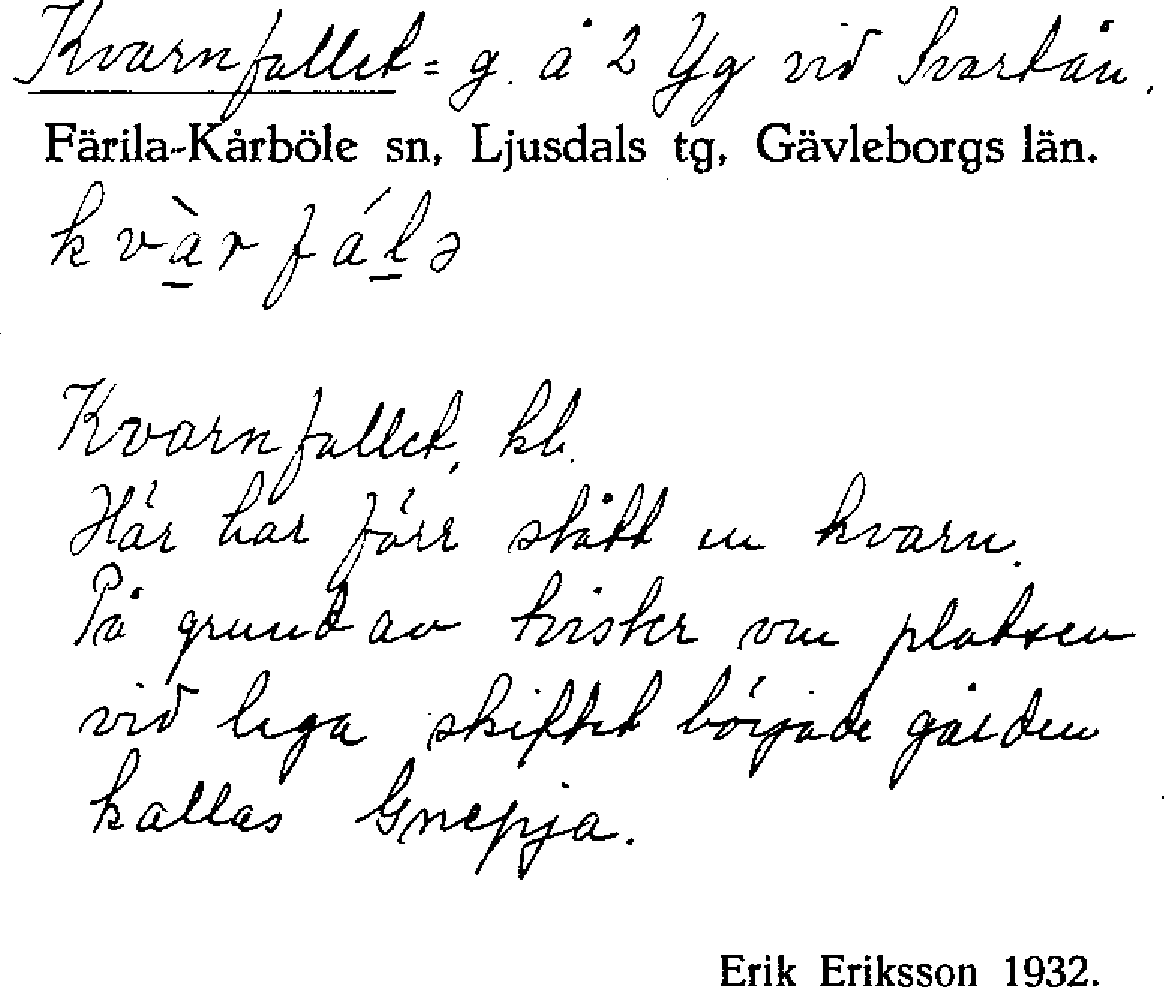 Kvarnfallet = g. å 2 Yg vid Svartån.
Färila-Kårböle sn, Ljusdals tg, Gävleborgs län.
kvàr fálə
Kvarnfallet, kb.
Här har förr stått en kvarn.
På grund av tvister om platsen
vid laga skiftet började gården
kallas Gnepja.
Erik Eriksson 1932.